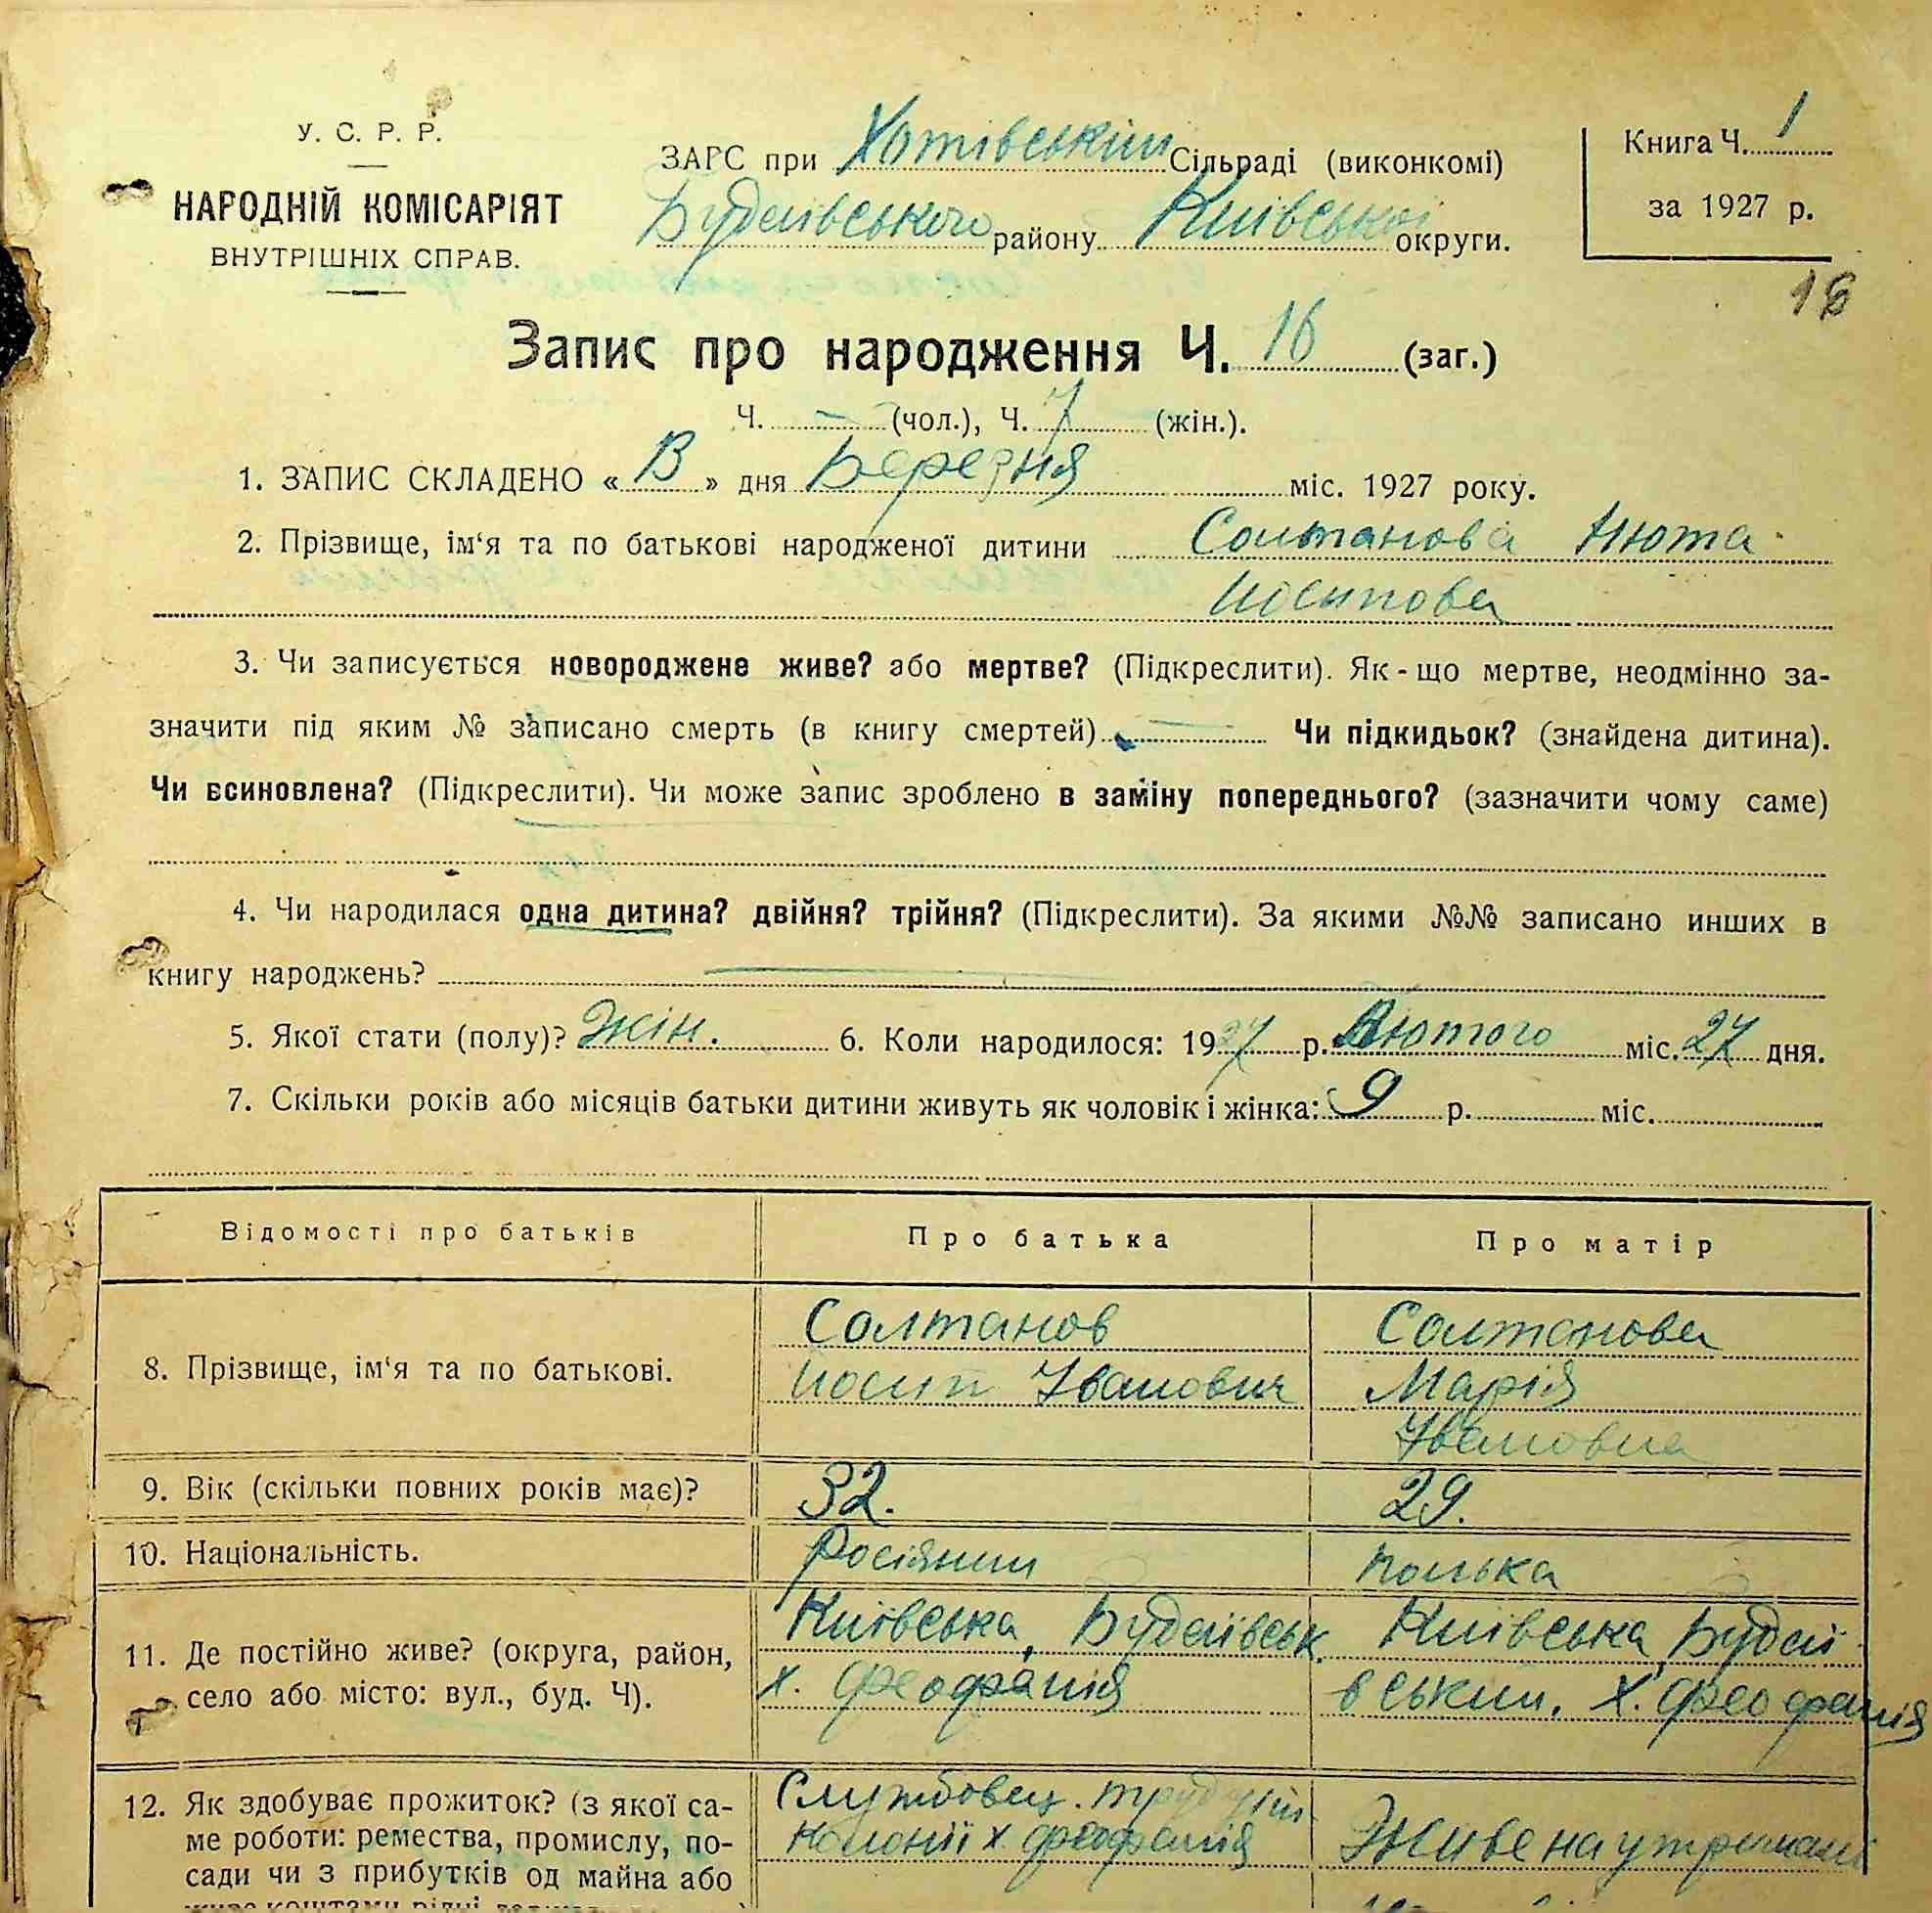 У. С. Р. Р.
НАРОДНІЙ КОМІСАРІЯТ
ВНУТРІШНІХ СПРАВ.
ЗАГС при Хотівський Сільраді (виконкомі)
Будаївського району Київської округи.
Книга Ч. 1
за 1927 р.
16
Запис про народження Ч. 16 (заг.)
Ч. — (чол.), Ч. 7 (жін.).
1. ЗАПИС СКЛАДЕНО « » дня Березня міс. 1927 року.
2. Прізвище, ім‘я та по батькові народженої дитини Солтанова Нюта
Йосипова
3. Чи записується новороджене живе? або мертве? (Підкреслити). Як-що мертве, неодмінно за-
значити під яким № записано смерть (в книгу смертей) — Чи підкидьок? (знайдена дитина).
Чи всиновлена? (Підкреслити). Чи може запис зроблено в заміну попереднього? (зазначити чому саме)
4. Чи народилася одна дитина? двійня? трійня? (Підкреслити). За якими №№ записано инших в
книгу народжень? —
5. Якої стати (полу)? Жін. 6. Коли народилося: 1927 р. Лютого міс. 27 дня.
7. Скільки років або місяців батьки дитини живуть як чоловік і жінка: 9 р. міс.
Відомості про батьків Про батька Про матір
8. Прізвище, ім‘я та по батькові.
Солтанов
Йосип Іванович
Солтанова
Марія
Івановна
9. Вік (скільки повних років має)? 32. 29.
10. Національність. Росіянин полька
11. Де постійно живе? (округа, район,
село або місто: вул., буд. Ч).
Київська, Будаївськ.
х. Феофанія
Київська, Будаї
вський. х. Феофанія
12. Як здобуває прожиток? (з якої са-
ме роботи: ремества, промислу, по-
сади чи з прибутків од майна або
Службовец.
колонії х. Феофанія
Живе на утримані